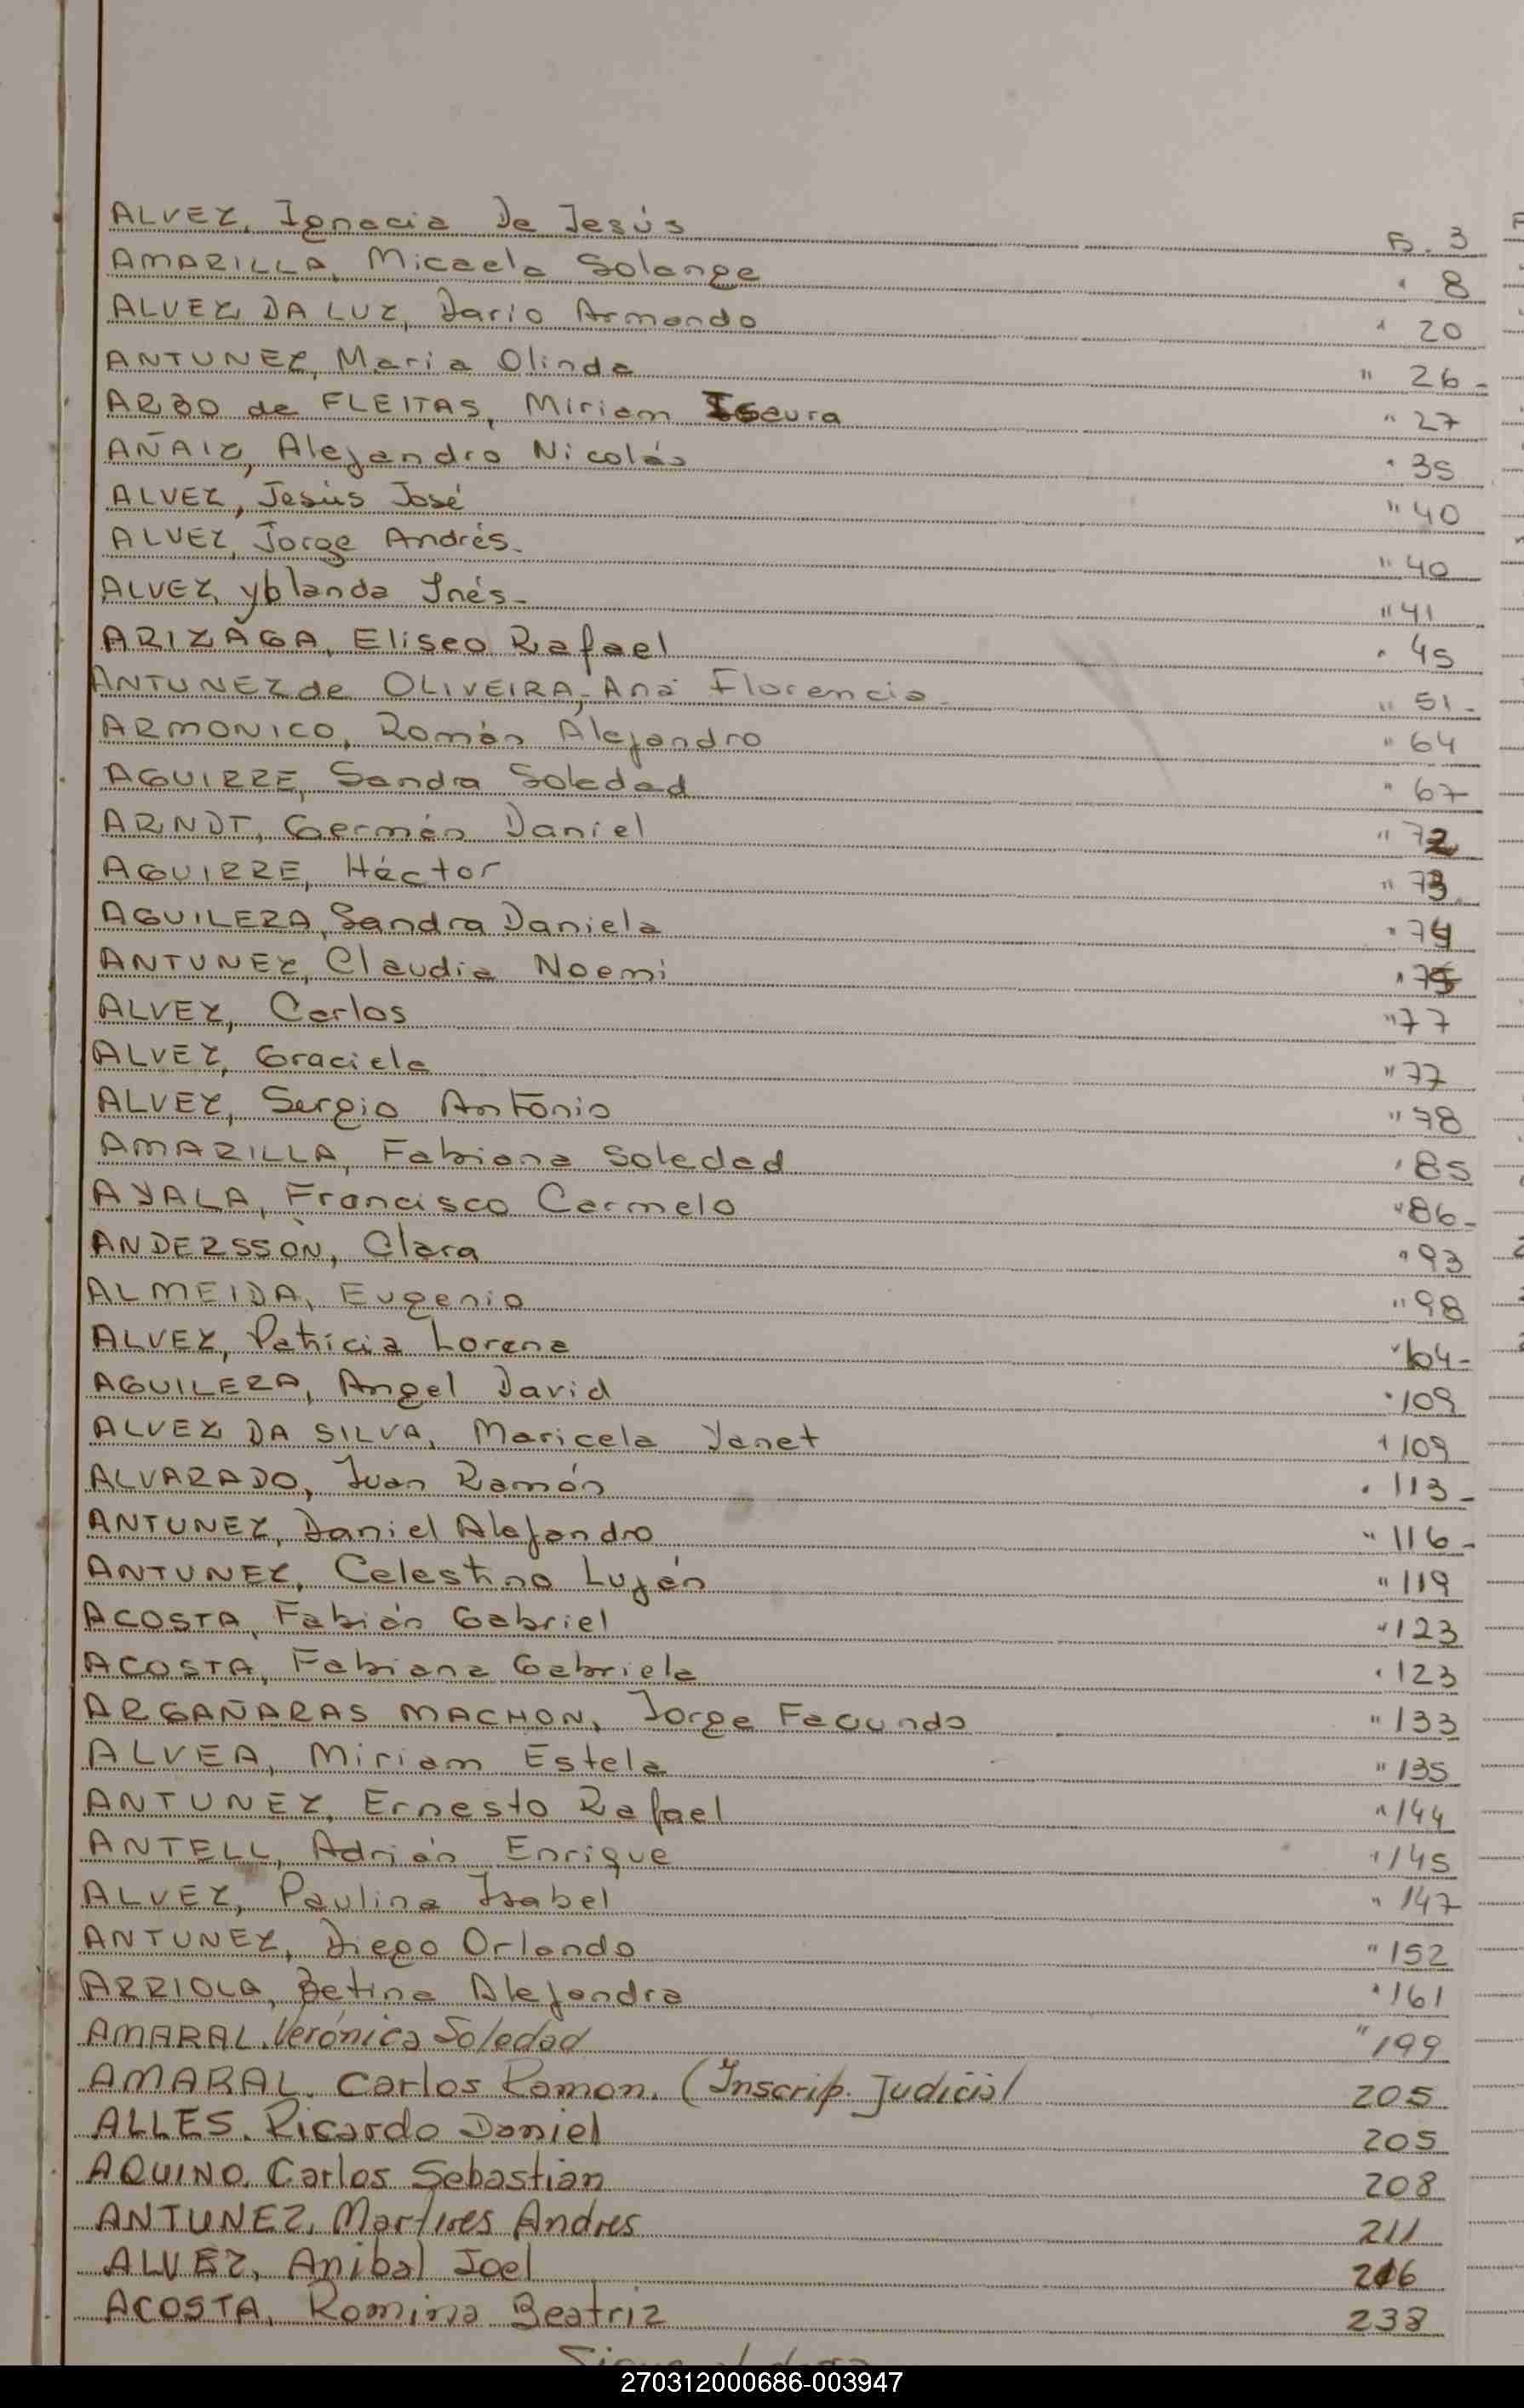 ALVEZ, Ignacia De Jesús Fs. 3
AMARILLA, Micaela Solange " 8
ALVEZ DA LUZ, Dario Armando " 20
ANTUNEZ, Maria Olinda " 26-
ARBO de FLEITAS, Miriam Isaura " 27
AÑAIZ, Alejandro Nicolás " 35
ALVEZ, Jesús José " 40
ALVEZ, Jorge Andrés. " 40
ALVEZ, yolanda Inés- " 41
ARIZAGA, Eliseo Rafael " 45
ANTUNEZ de OLIVEIRA, Ana Florencia- " 51-
ARMONICO, Román Alejandro " 64
AGUIRRE, Sandra Soledad " 67
ARNDT, Germán Daniel " 72
AGUIRRE, Héctor " 73
AGUILERA, Sandra Daniela " 74
ANTUNEZ, Claudia Noemi " 75
ALVEZ, Carlos " 77
ALVEZ, Graciela " 77
ALVEZ, Sergio Antonio " 78
AMARILLA, Fabiana Soledad " 85
AYALA, Francisco Carmelo " 86-
ANDERSSON, Clara " 93
ALMEIDA, Eugenio " 98
ALVEZ, Patricia Lorena " 104-
AGUILERA, Angel David " 109
ALVEZ DA SILVA, Maricela Yanet " 109
ALVARADO, Juan Ramón " 113-
ANTUNEZ, Daniel Alejandro " 116-
ANTUNEZ, Celestino Luján " 119
ACOSTA, Fabián Gabriel " 123
ACOSTA, Fabiana Gabriela " 123
ARGAÑARAS MACHON, Jorge Facundo " 133
ALVEA, Miriam Estela " 135
ANTUNEZ, Ernesto Rafael " 144
ANTELL, Adrián Enrique " 145
ALVEZ, Paulina Isabel " 147
ANTUNEZ, Diego Orlando " 152
ARRIOLA, Betina Alejandra " 161
AMARAL, Verónica Soledad " 199
AMARAL, Carlos Ramon. (Inscrip. Judicial 205
ALLES, Ricardo Daniel 205
AQUINO, Carlos Sebastián 208
ANTUNEZ, Martires Andres 211
ALVEZ, Anibal Joel 216
ACOSTA, Romina Beatriz 238
270312000686-003947